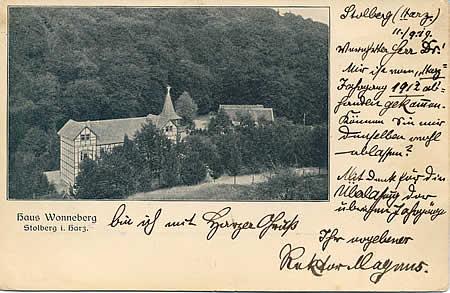 Stolberg (Harz)
11.9.19.
Verehrter Herr Dr!
Mir ist vom „Harz"
Jahrgang 1912 ab-
handen gekommen.
Können Sie mir
denselben wohl
ablassen?
Mit Dank für die
Überlassung der
übrigen Jahrgänge
bin ich mit Harzer Gruß
Ihr ergebener
Rektor Magnus.
Haus Wonneberg
Stolberg i. Harz.